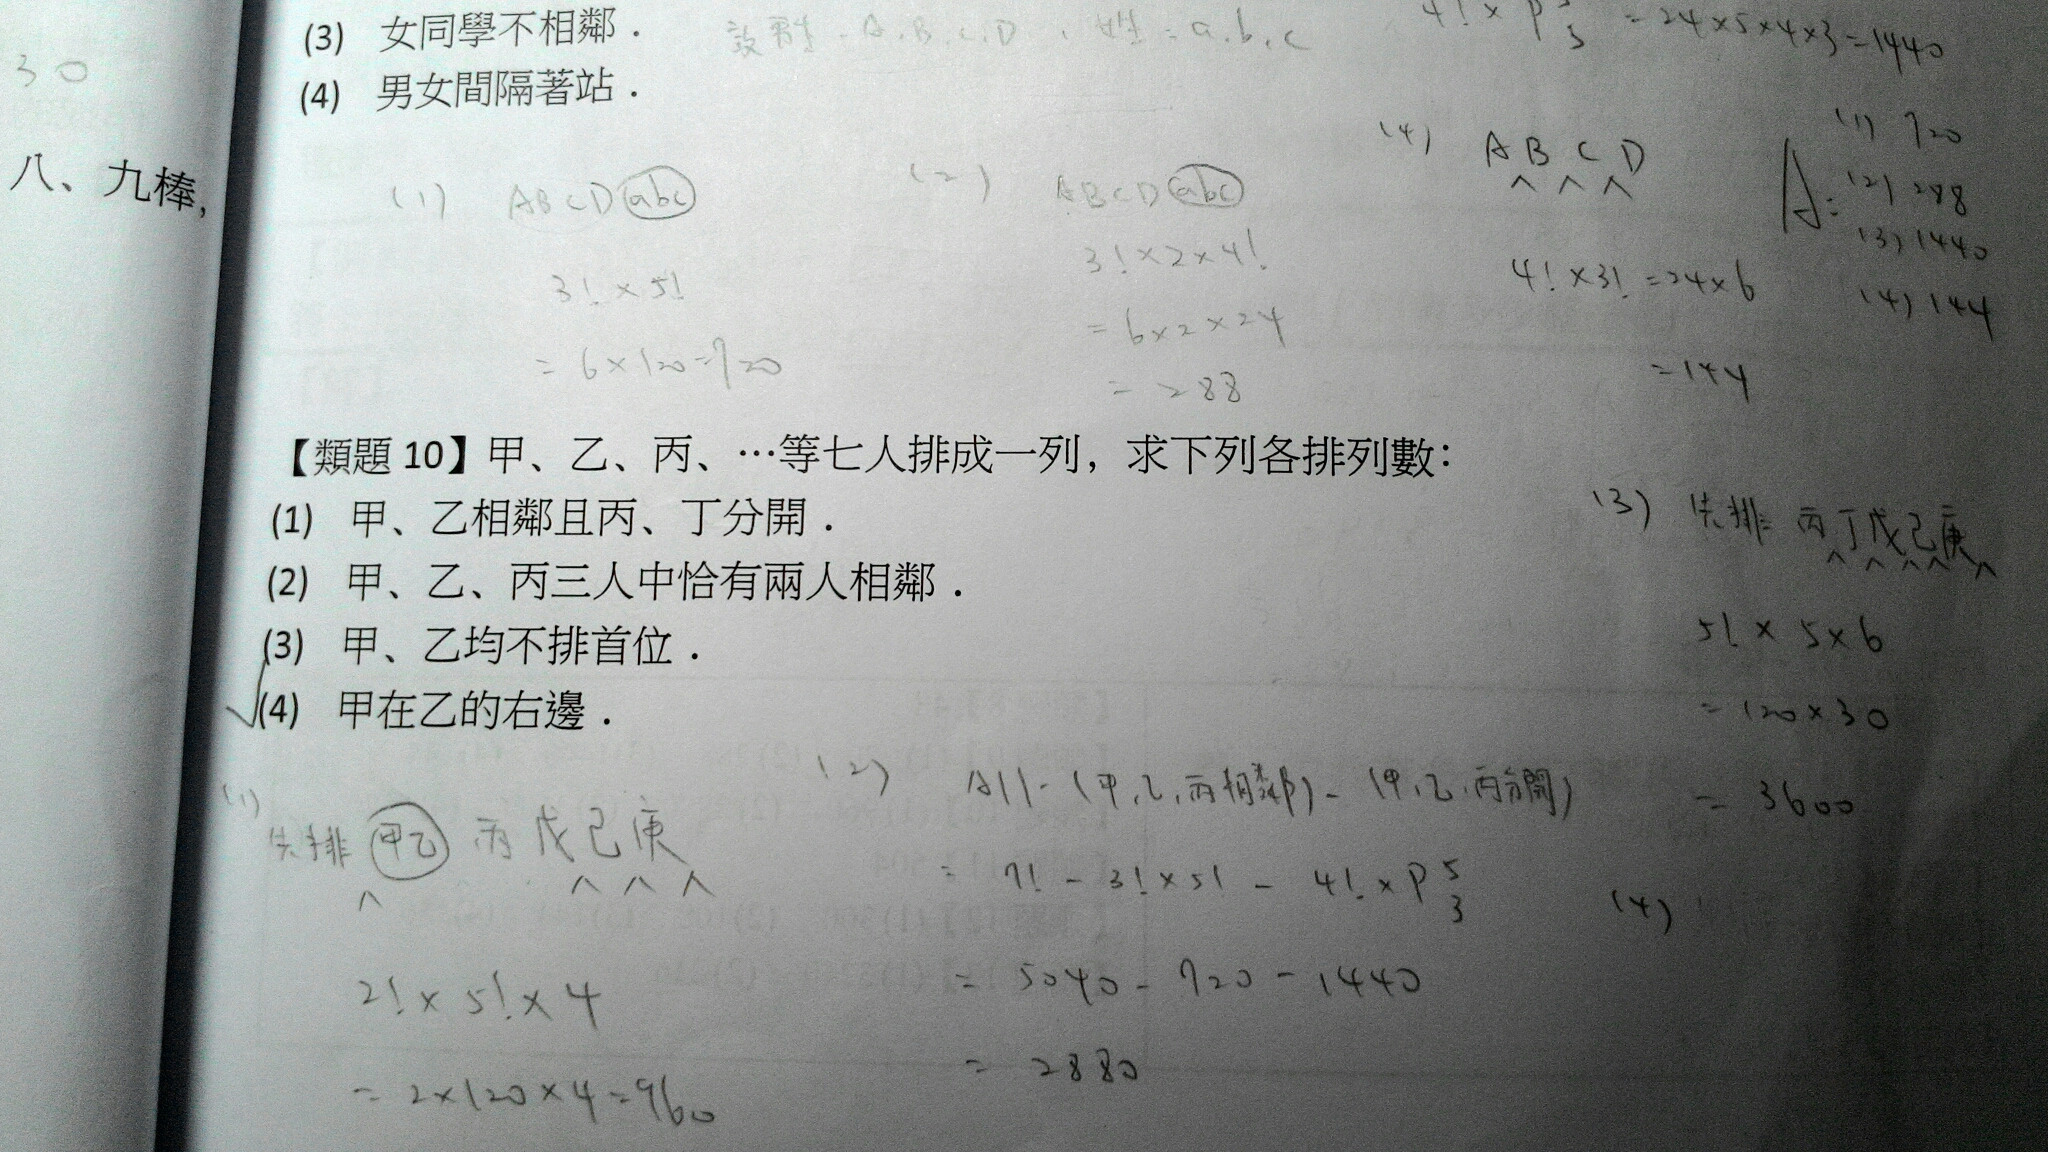 (3) 女同學不相鄰．
設男生：A.B.C.D，女生：a.b.c
4! × P⁵₃ = 24×5×4×3=1440
30
(4) 男女間隔著站．
八、九棒,
(1) ABCD abc
3! × 5!
= 6×120=720
(2) ABCD abc
3!×2×4!
= 6×2×24
= 288
(4) A B C D
^ ^ ^
4!×3! =24×6
=144
A: (1) 720
(2) 288
(3) 1440
(4) 144
【類題 10】甲、乙、丙、…等七人排成一列，求下列各排列數：
(1) 甲、乙相鄰且丙、丁分開．
(2) 甲、乙、丙三人中恰有兩人相鄰．
(3) 甲、乙均不排首位．
√(4) 甲在乙的右邊．
(1)
先排 甲乙 丙戊己庚
^ ^ ^ ^
2! × 5! × 4
= 2×120×4=960
(2) All - (甲,乙,丙相鄰) - (甲,乙,丙分開)
= 7! - 3!×5! - 4!×P⁵₃
= 5040 - 720 - 1440
= 2880
(3) 先排 丙丁戊己庚
^ ^ ^ ^ ^
5! × 5×6
= 120×30
= 3600
(4)